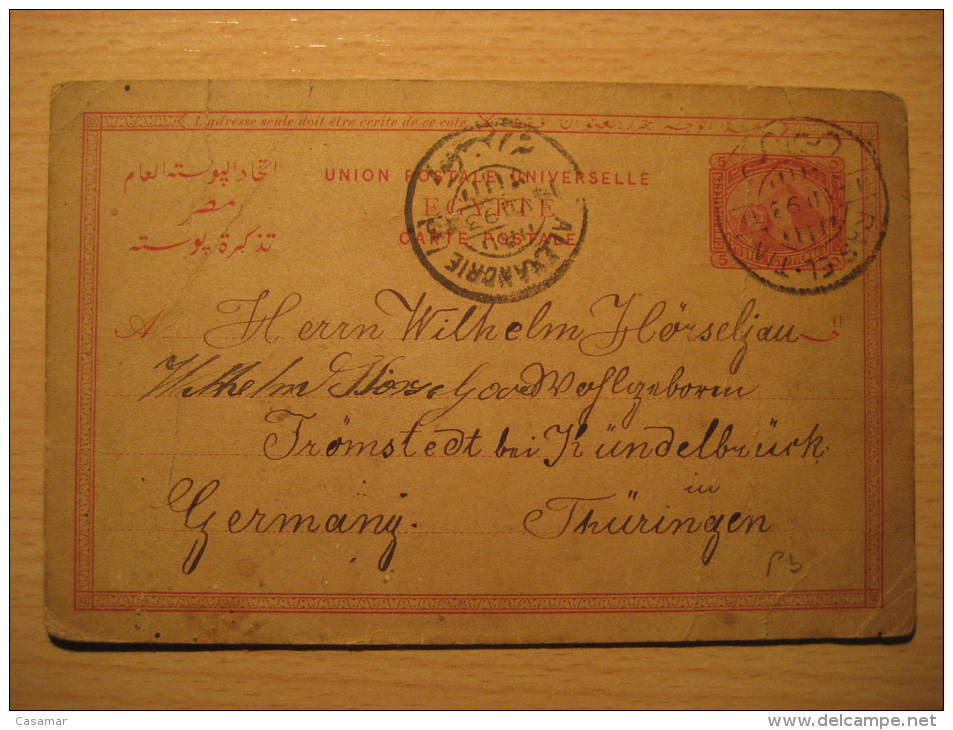 L'adresse seule doit être écrite de ce côté
اتحاد البوسته العام
مصر
تذكرة بوسته
UNION POSTALE UNIVERSELLE
EGYPTE
CARTE POSTALE
ALEXANDRIE
RAS-EL-TIN
5 5
A Herrn Wilhelm Hörseljau
Wilhelm Wohlgeborm
Trömstedt bei Kündelbrück
in
Germany. Thüringen
Casamar
delcampe.net